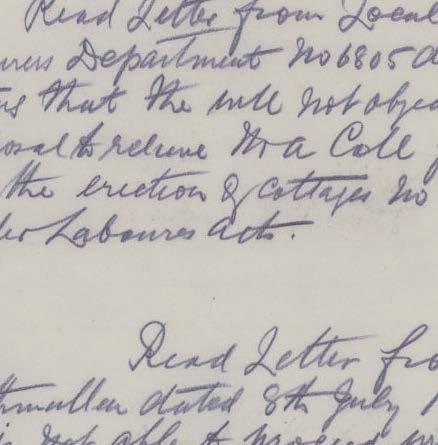 Read Letter from Local
urers Department No 6805 a
ing that the will not objec
posal to relieve Mr A Coll
the erection of Cottages No
der Laboures acts.
Read Letter fro
thmullen dated 8th July 1
is not able to proceed